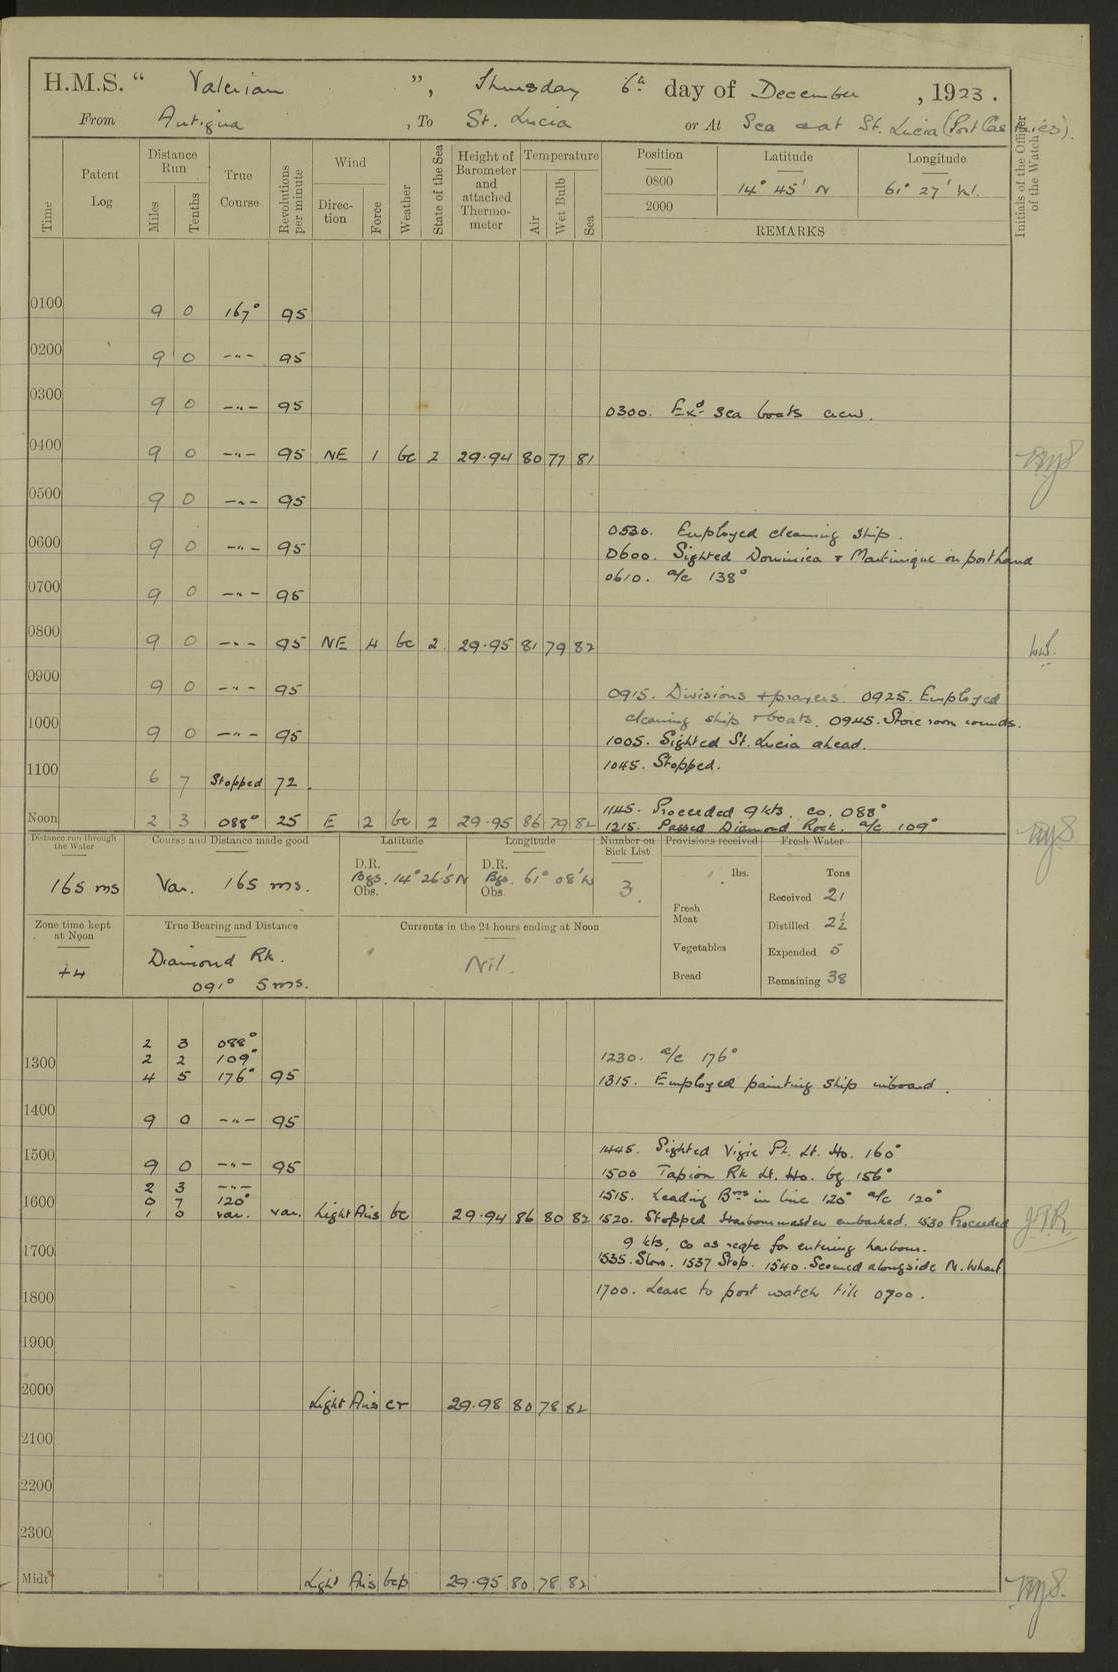 H.M.S. “ Valerian ”, Thursday 6th day of December , 1923.
From Antigua , To St. Lucia or At Sea & at St. Lucia (Port Castries).
Time
Patent Log
Distance Run
Miles
Tenths
True Course
Revolutions per minute
Wind
Direction
Force
Weather
State of the Sea
Height of Barometer and attached Thermometer
Temperature
Air
Wet Bulb
Sea
Position Latitude Longitude
0800 14° 45' N 61° 27' W.
2000
REMARKS
Initials of the Officer of the Watch
0100 9 0 167° 95
0200 9 0 -"- 95
0300 9 0 -"- 95
0300. Exd sea boats crew.
0400 9 0 -"- 95 NE 1 bc 2 29.94 80 77 81
0500 9 0 -"- 95
0530. Employed cleaning ship.
0600 9 0 -"- 95
0600. Sighted Dominica & Martinique on port hand
0610. a/c 138°
0700 9 0 -"- 95
0800 9 0 -"- 95 NE 4 bc 2 29.95 81 79 82
0900 9 0 -"- 95
0915. Divisions & prayers. 0925. Employed
cleaning ship & boats. 0945. Store room rounds.
1000 9 0 -"- 95
1005. Sighted St. Lucia ahead.
1045. Stopped.
1100 6 7 Stopped 72.
1145. Proceeded 9 kts. co. 088°
Noon 2 3 088° 25 E 2 bc 2 29.95 86 79 82
1215. Passed Diamond Rock. a/c 109°
Distance run through the Water
165 ms
Course and Distance made good
Var. 165 ms.
Latitude
D.R.
Bgs. 14° 26.5' N
Obs.
Longitude
D.R.
Bgs. 61° 08' W
Obs
Number on Sick List
3.
Provisions received
lbs.
Fresh Meat
Vegetables
Bread
Fresh Water
Tons
Received 21
Distilled 2½
Expended 5
Remaining 38
Zone time kept at Noon
+4
True Bearing and Distance
Diamond Rk.
091° 5 ms.
Currents in the 24 hours ending at Noon
Nil.
2 3 088°
2 2 109°
1300 4 5 176° 95
1230. a/c 176°
1315. Employed painting ship inboard.
1400 9 0 -"- 95
1445. Sighted Vigie Pt. Lt. Ho. 160°
1500 9 0 -"- 95
1500 Tapion Rk Lt. Ho. bg 156°
2 3 -"-
0 7 120°
1515. Leading Bns in line 120° a/c 120°
1600 1 0 var. var. Light Airs bc 29.94 86 80 82
1520. Stopped Harbourmaster embarked. 1530 Proceeded
J.T.R.
9 kts, co as reqte for entering harbour.
1700
1535. Slow. 1537 Stop. 1540. Secured alongside N. Wharf
1700. Leave to port watch till 0700.
1800
1900
2000 Light Airs cr 29.98 80 78 82
2100
2200
2300
Midt Light Airs bcp 29.95 80 78 82